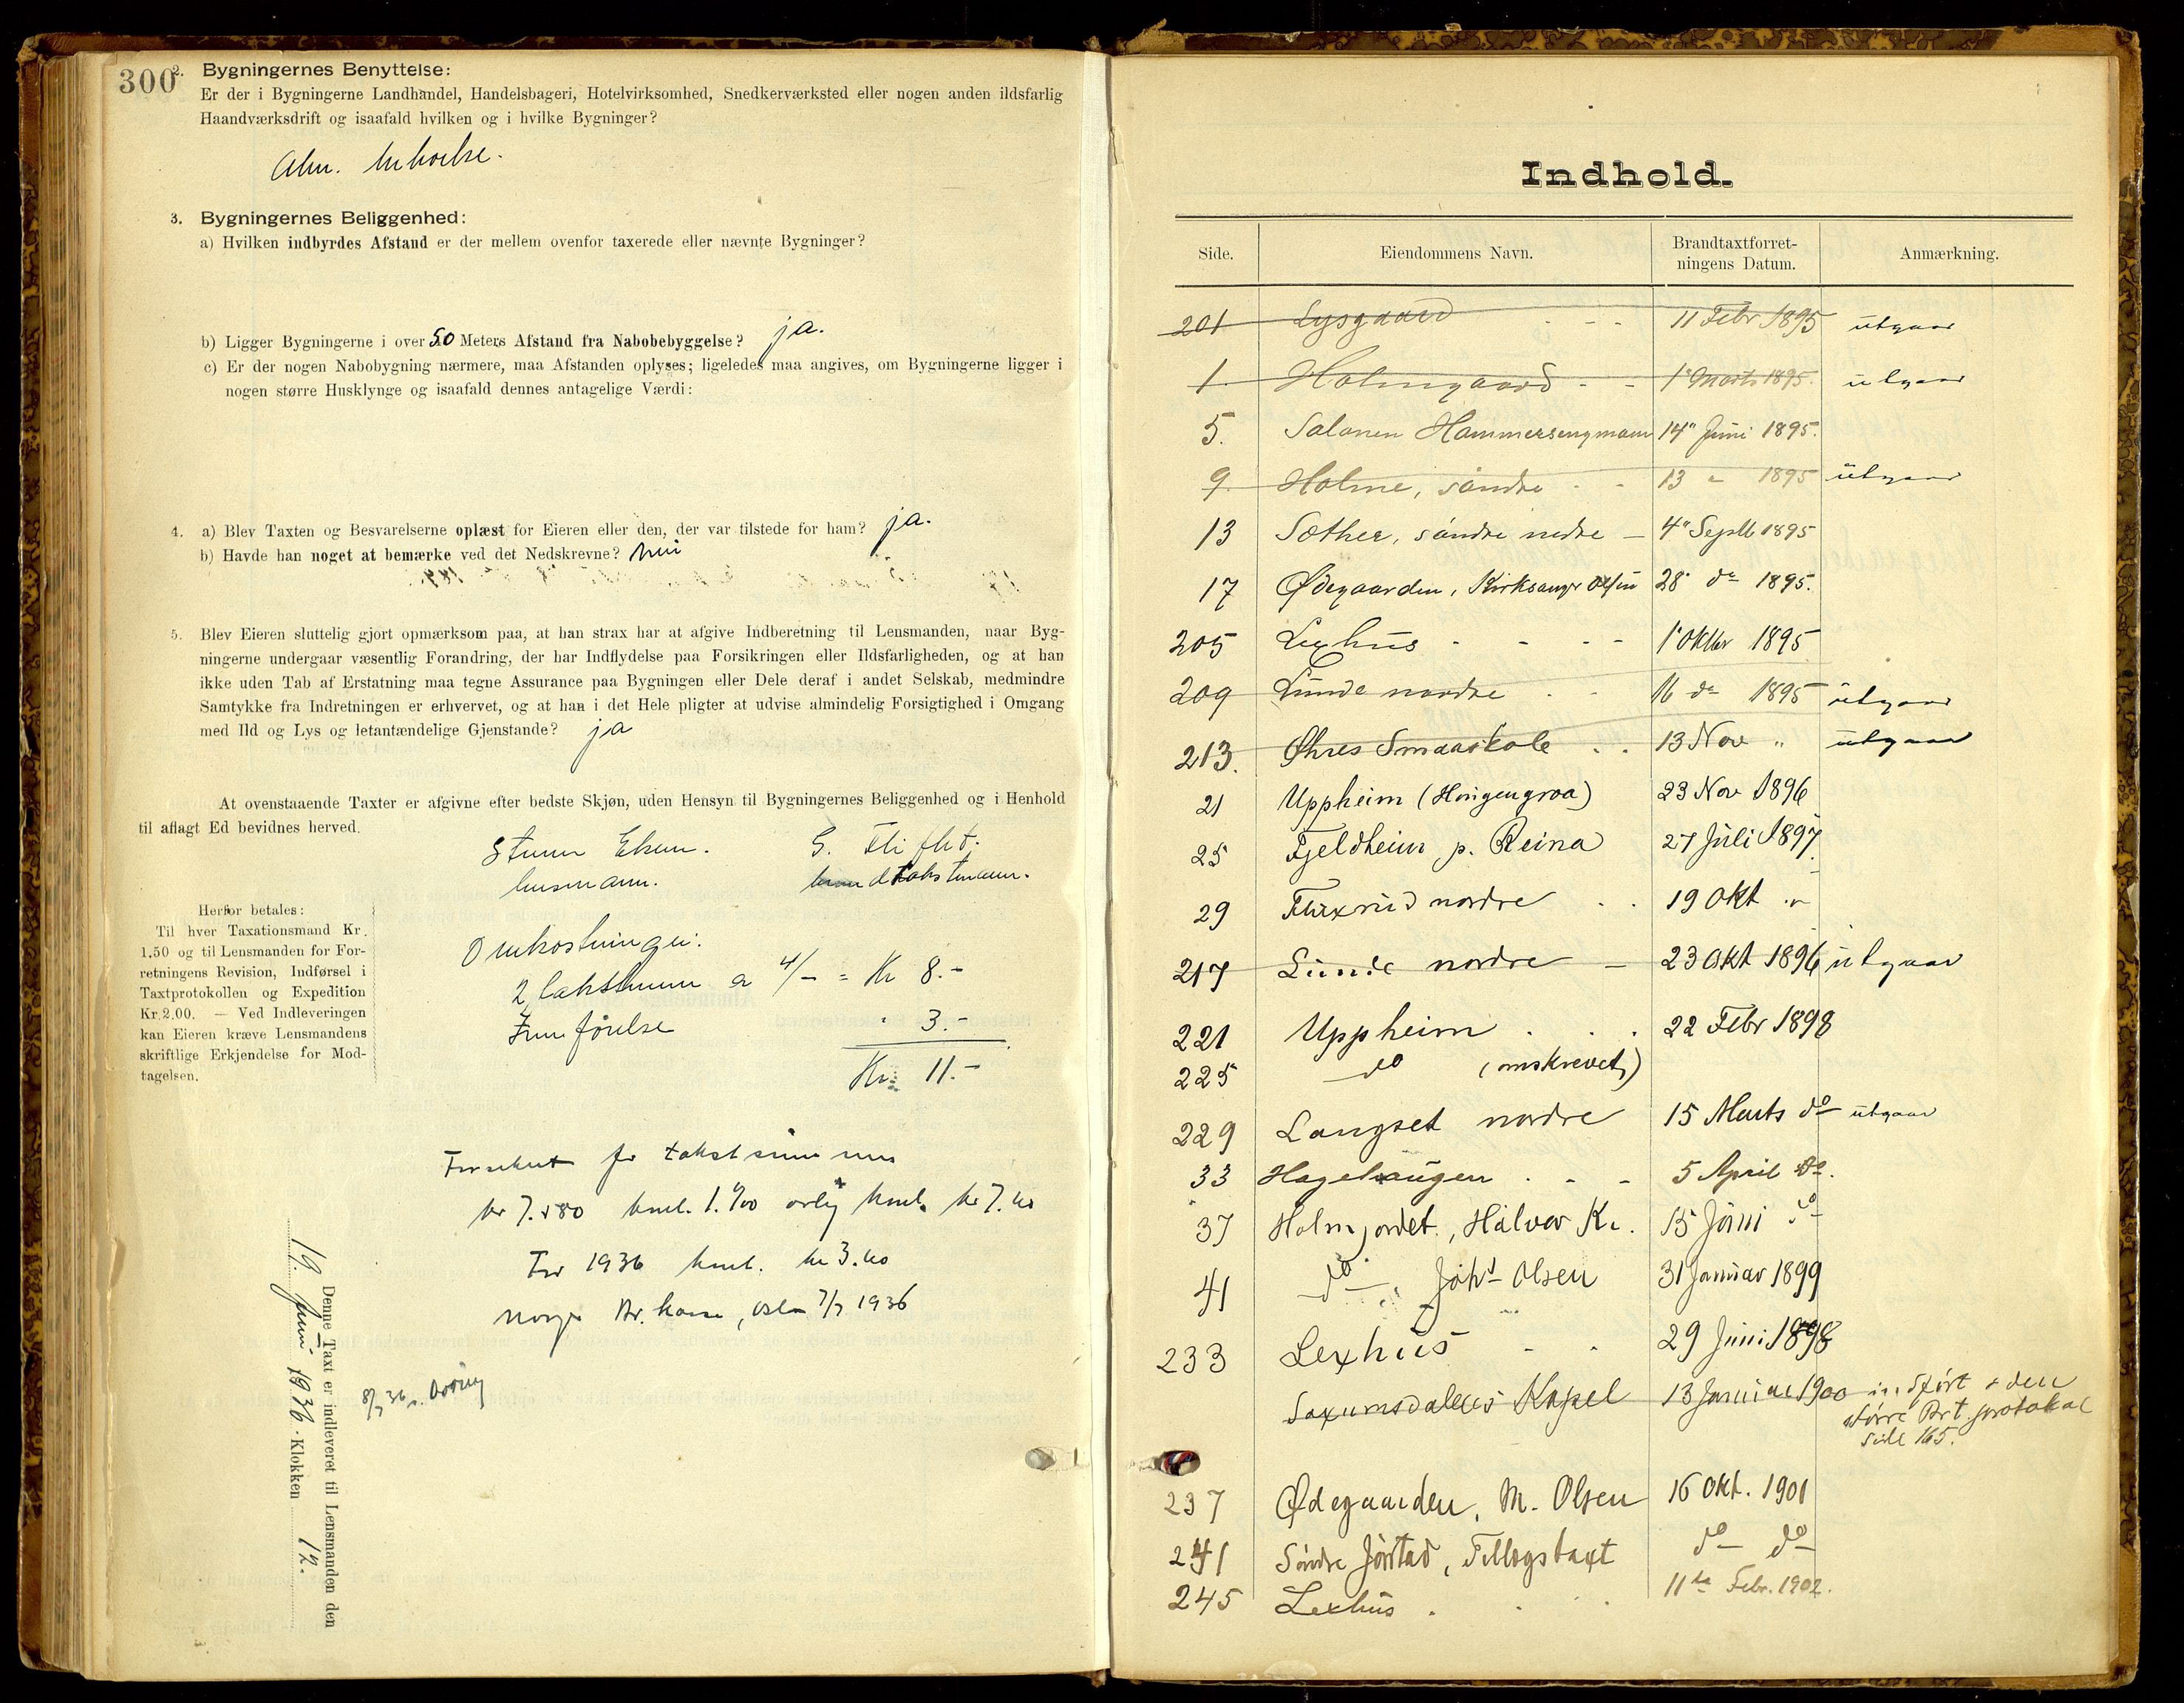 300
2. Bygningernes Benyttelse:
Er der i Bygningerne Landhandel, Handelsbageri, Hotelvirksomhed, Snedkerværksted eller nogen anden ildsfarlig
Haandværksdrift og isaafald hvilken og i hvilke Bygninger?
Alm. beboelse.
3. Bygningernes Beliggenhed:
a) Hvilken indbyrdes Afstand er der mellem ovenfor taxerede eller nævnte Bygninger?
b) Ligger Bygningerne i over 50 Meters Afstand fra Nabobebyggelse? ja.
c) Er der nogen Nabobygning nærmere, maa Afstanden oplyses; ligeledes maa angives, om Bygningerne ligger i
nogen større Husklynge og isaafald dennes antagelige Værdi:
4. a) Blev Taxten og Besvarelserne oplæst for Eieren eller den, der var tilstede for ham? ja.
b) Havde han noget at bemærke ved det Nedskrevne? nei
5. Blev Eieren sluttelig gjort opmærksom paa, at han strax har at afgive Indberetning til Lensmanden, naar Byg-
ningerne undergaar væsentlig Forandring, der har Indflydelse paa Forsikringen eller Ildsfarligheden, og at han
ikke uden Tab af Erstatning maa tegne Assurance paa Bygningen eller Dele deraf i andet Selskab, medmindre
Samtykke fra Indretningen er erhvervet, og at han i det Hele pligter at udvise almindelig Forsigtighed i Omgang
med Ild og Lys og letantændelige Gjenstande? ja
At ovenstaaende Taxter er afgivne efter bedste Skjøn, uden Hensyn til Bygningernes Beliggenhed og i Henhold
til aflagt Ed bevidnes herved.
lensmann. takstmann.
Herfor betales:
Til hver Taxationsmand Kr.
1.50 og til Lensmanden for For-
retningens Revision, Indførsel i
Taxtprotokollen og Expedition
Kr. 2.00. — Ved Indleveringen
kan Eieren kræve Lensmandens
skriftlige Erkjendelse for Mod-
tagelsen.
Omkostninger:
2 takstmenn a 4/- = Kr 8.-
Innførelse " 3.-
Kr. 11.-
takstsummen
For 1936
Norges Br. kasse, Oslo 7/7 1936
Denne Taxt er indleveret til Lensmanden den
19. Juni 1936 Klokken 12.
Indhold.
Side. Eiendommens Navn. Brandtaxtforret-
ningens Datum. Anmærkning.
201 Lysgaard 11 Febr 1895 utgaar
1. Holmgaard 1' Marts 1895. utgaar
5. Salonen Hammersengmoen 14" Juni 1895.
9. Holme, søndre 13 " 1895 utgaar
13 Sæther, søndre nedre 4" Septb 1895
17 Ødegaarden, Kirksanger Olsen 28' do 1895.
205 Lexhus 1' Oktbr 1895
209 Lunde nordre 16 do 1895 utgaar
213. Øhres Smaaskole 13 Nov " utgaar
21 Uppheim (Hongengroa) 23 Nov 1896
25 Fjeldheim p. Reina 27 Juli 1897.
29 Fluxrud nordre 19 Okt "
217 Lunde nordre 23 Okt 1896 utgaar
221 Uppheim 22 Febr 1898
225 do (omskrevet)
229 Langset nordre 15 Marts do utgaar
33 Hagehaugen 5 April do.
37 Holmjordet, Halvor Kr. 15 Juni do
41 do, Johs Olsen 31 Januar 1899
233 Lexhus 29 Juni 1898
Saxumsdalens Kapel 13 Januar 1900 indført i den
større Brt. protokol
side 165.
237 Ødegaarden, M. Olsen 16 Okt. 1901
241 Søndre Jørstad, Tillægstaxt do do
245 Lexhus 11te Febr. 1902.